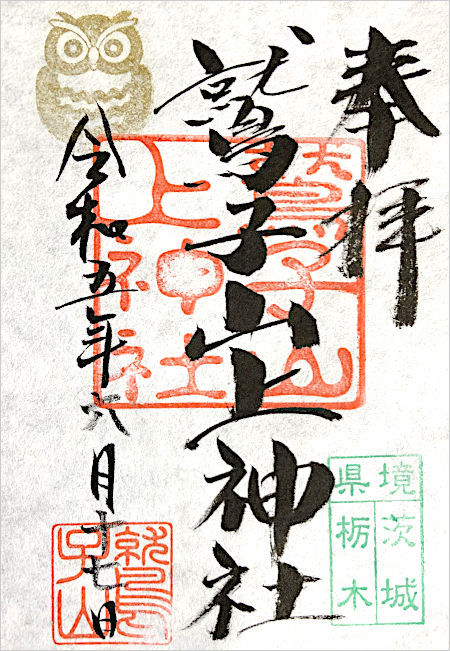 奉拝
鷲子山上神社
令和五年六月十七日
鷲子山上神社
境県
茨城
栃木
鷲子山